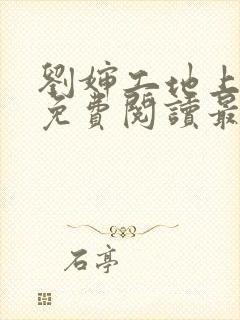 劉嬸工地上
免費閱讀最
石亭